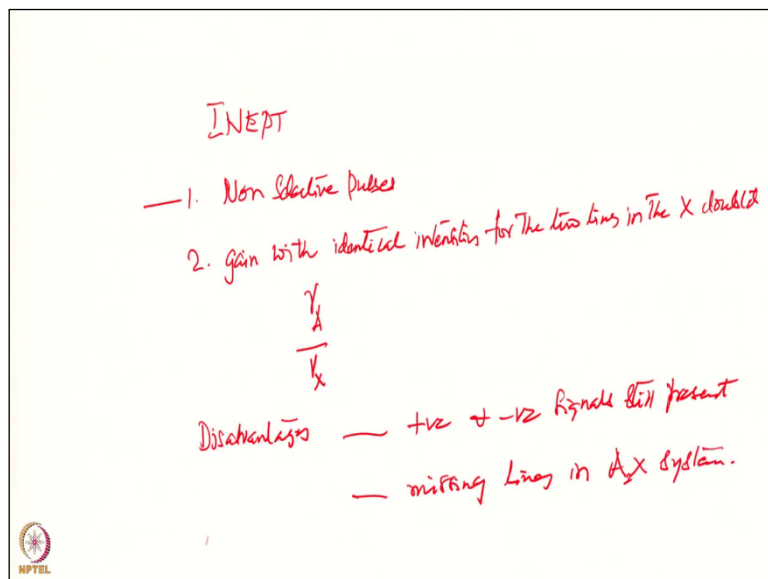 INEPT
— 1. Non Selective pulses
2. gain with identical intensities for the two lines in the X doublet
γA
—
γX
Disadvantages — +ve & -ve signals still present
— missing lines in A2X system.
NPTEL